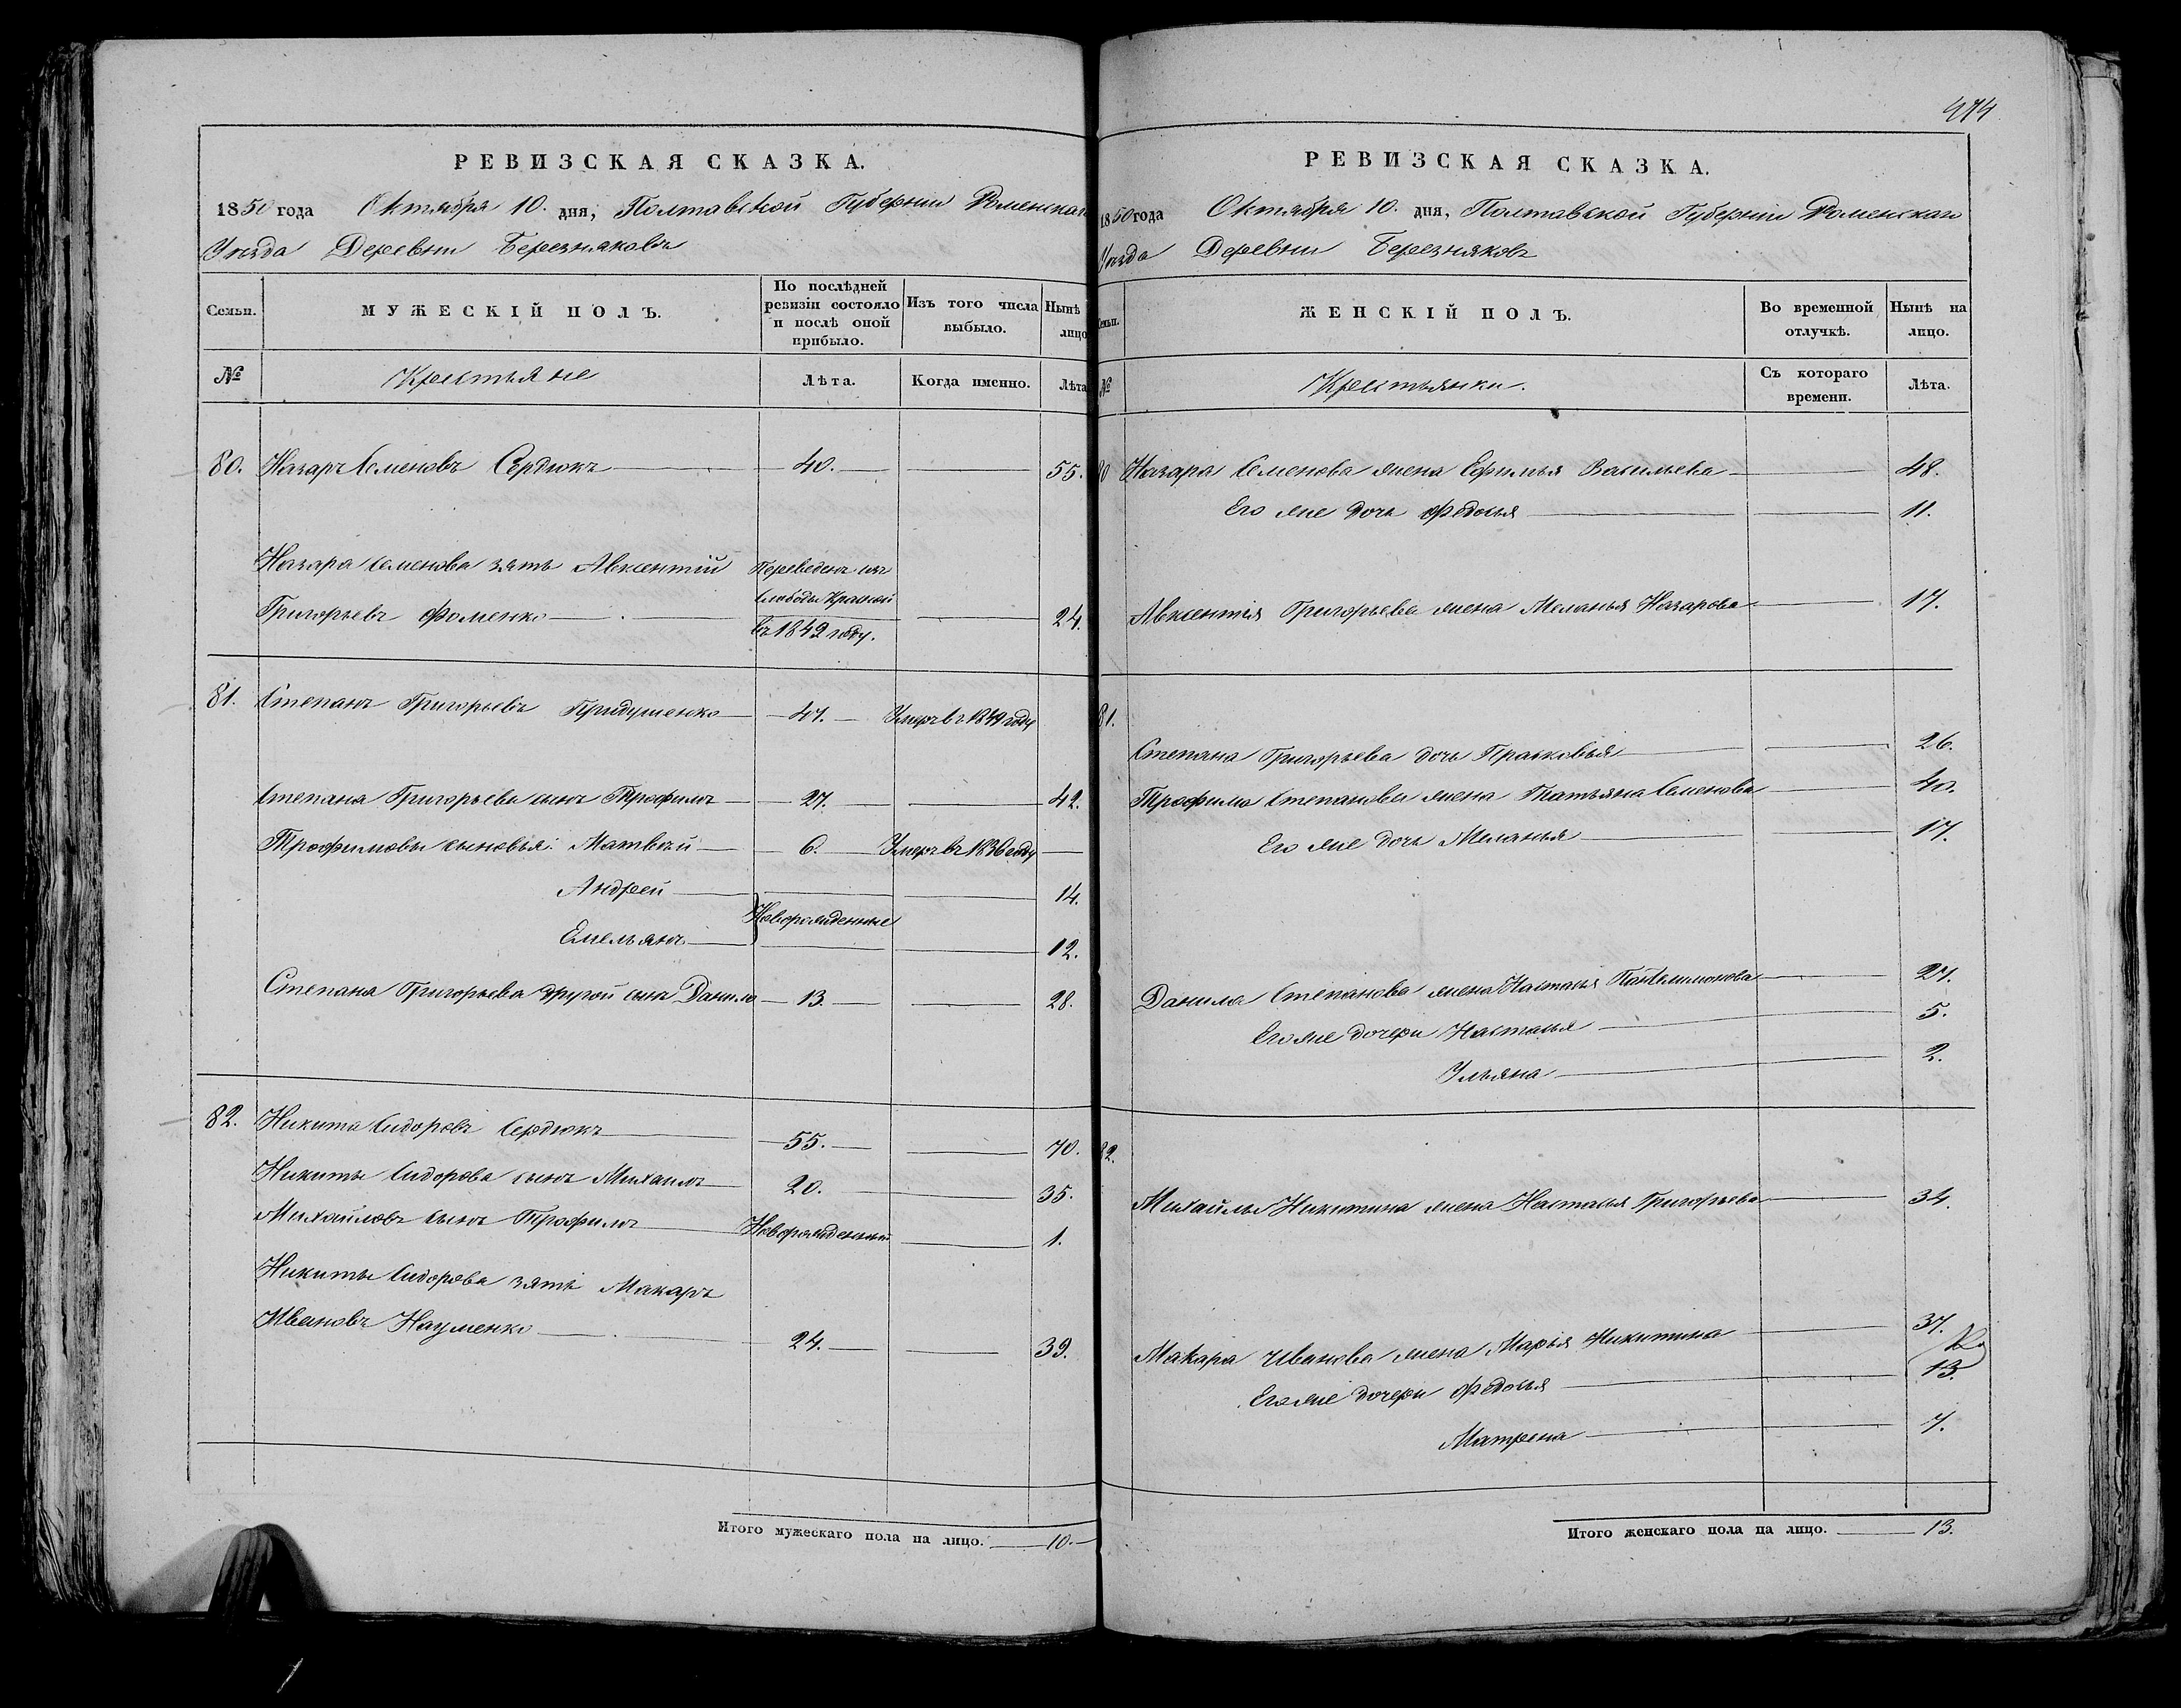 РЕВИЗСКАЯ СКАЗКА.
1850 года Октября 10. дня, Полтавской Губернии Роменскаго
Уѣзда Деревни Березняковъ
Семьи. МУЖЕСКІЙ ПОЛЪ. По послѣдней ревизіи состояло и послѣ оной прибыло. Изъ того числа выбыло. Нынѣ лицо
№ Крестьяне Лѣта. Когда именно. Лѣта
80. Назаръ Семеновъ Сердюкъ 40. 55.
Назара Семенова зять Авксентій Переведенъ изъ
слободы Красной
Григорьевъ Фоменко въ 1842 году. 24.
81. Степанъ Григорьевъ Придушенко 47. Умеръ въ 1849 году
Степана Григорьева сынъ Трофимъ 27. 42.
Трофимовы сыновья: Матвѣй 6. Умеръ въ 1836 году
Андрей 14.
Новорожденные
Емельянъ 12.
Степана Григорьева другой сынъ Данило 13. 28.
82. Никита Сидоровъ Сердюкъ 55. 70.
Никиты Сидорова сынъ Михаилъ 20. 35.
Михайловъ сынъ Трофимъ Новорожденный 1.
Никиты Сидорова зять Макаръ
Ивановъ Науменко 24. 39.
Итого мужескаго пола на лицо. 10.
474
РЕВИЗСКАЯ СКАЗКА.
1850 года Октября 10. дня, Полтавской Губерніи Роменскаго
Уѣзда Деревни Березняковъ
Семьи. ЖЕНСКІЙ ПОЛЪ. Во временной отлучкѣ. Нынѣ на лицо.
№ Крестьянки. Съ котораго времени. Лѣта.
80 Назара Семенова жена Ефимья Васильева 48.
Его же дочь Федосья 11.
Авксентія Григорьева жена Меланья Назарова 17.
81.
Степана Григорьева дочь Прасковья 26.
Трофима Степанова жена Татьяна Семенова 40.
Его же дочь Меланья 17.
Данила Степанова жена Настасья Пантелимонова 27.
Его же дочери Настасья 5.
Ульяна 2.
82.
Михайлы Никитина жена Настасья Григорьева 34.
Макара Иванова жена Марья Никитина 37.
Его же дочери Федосья 13.
Матрена 7.
Итого женскаго пола на лицо. 13.